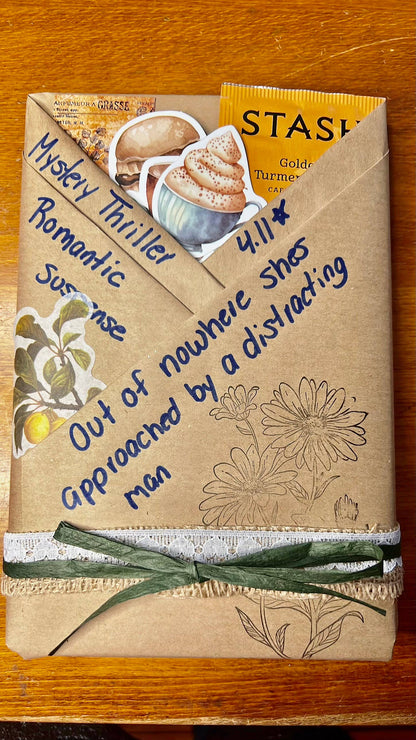 GRASSE
STASH
Golde
Turme
CAF
Mystery Thriller
Romantic
Suspense
4.11☆
Out of nowhere shes
approached by a distracting
man